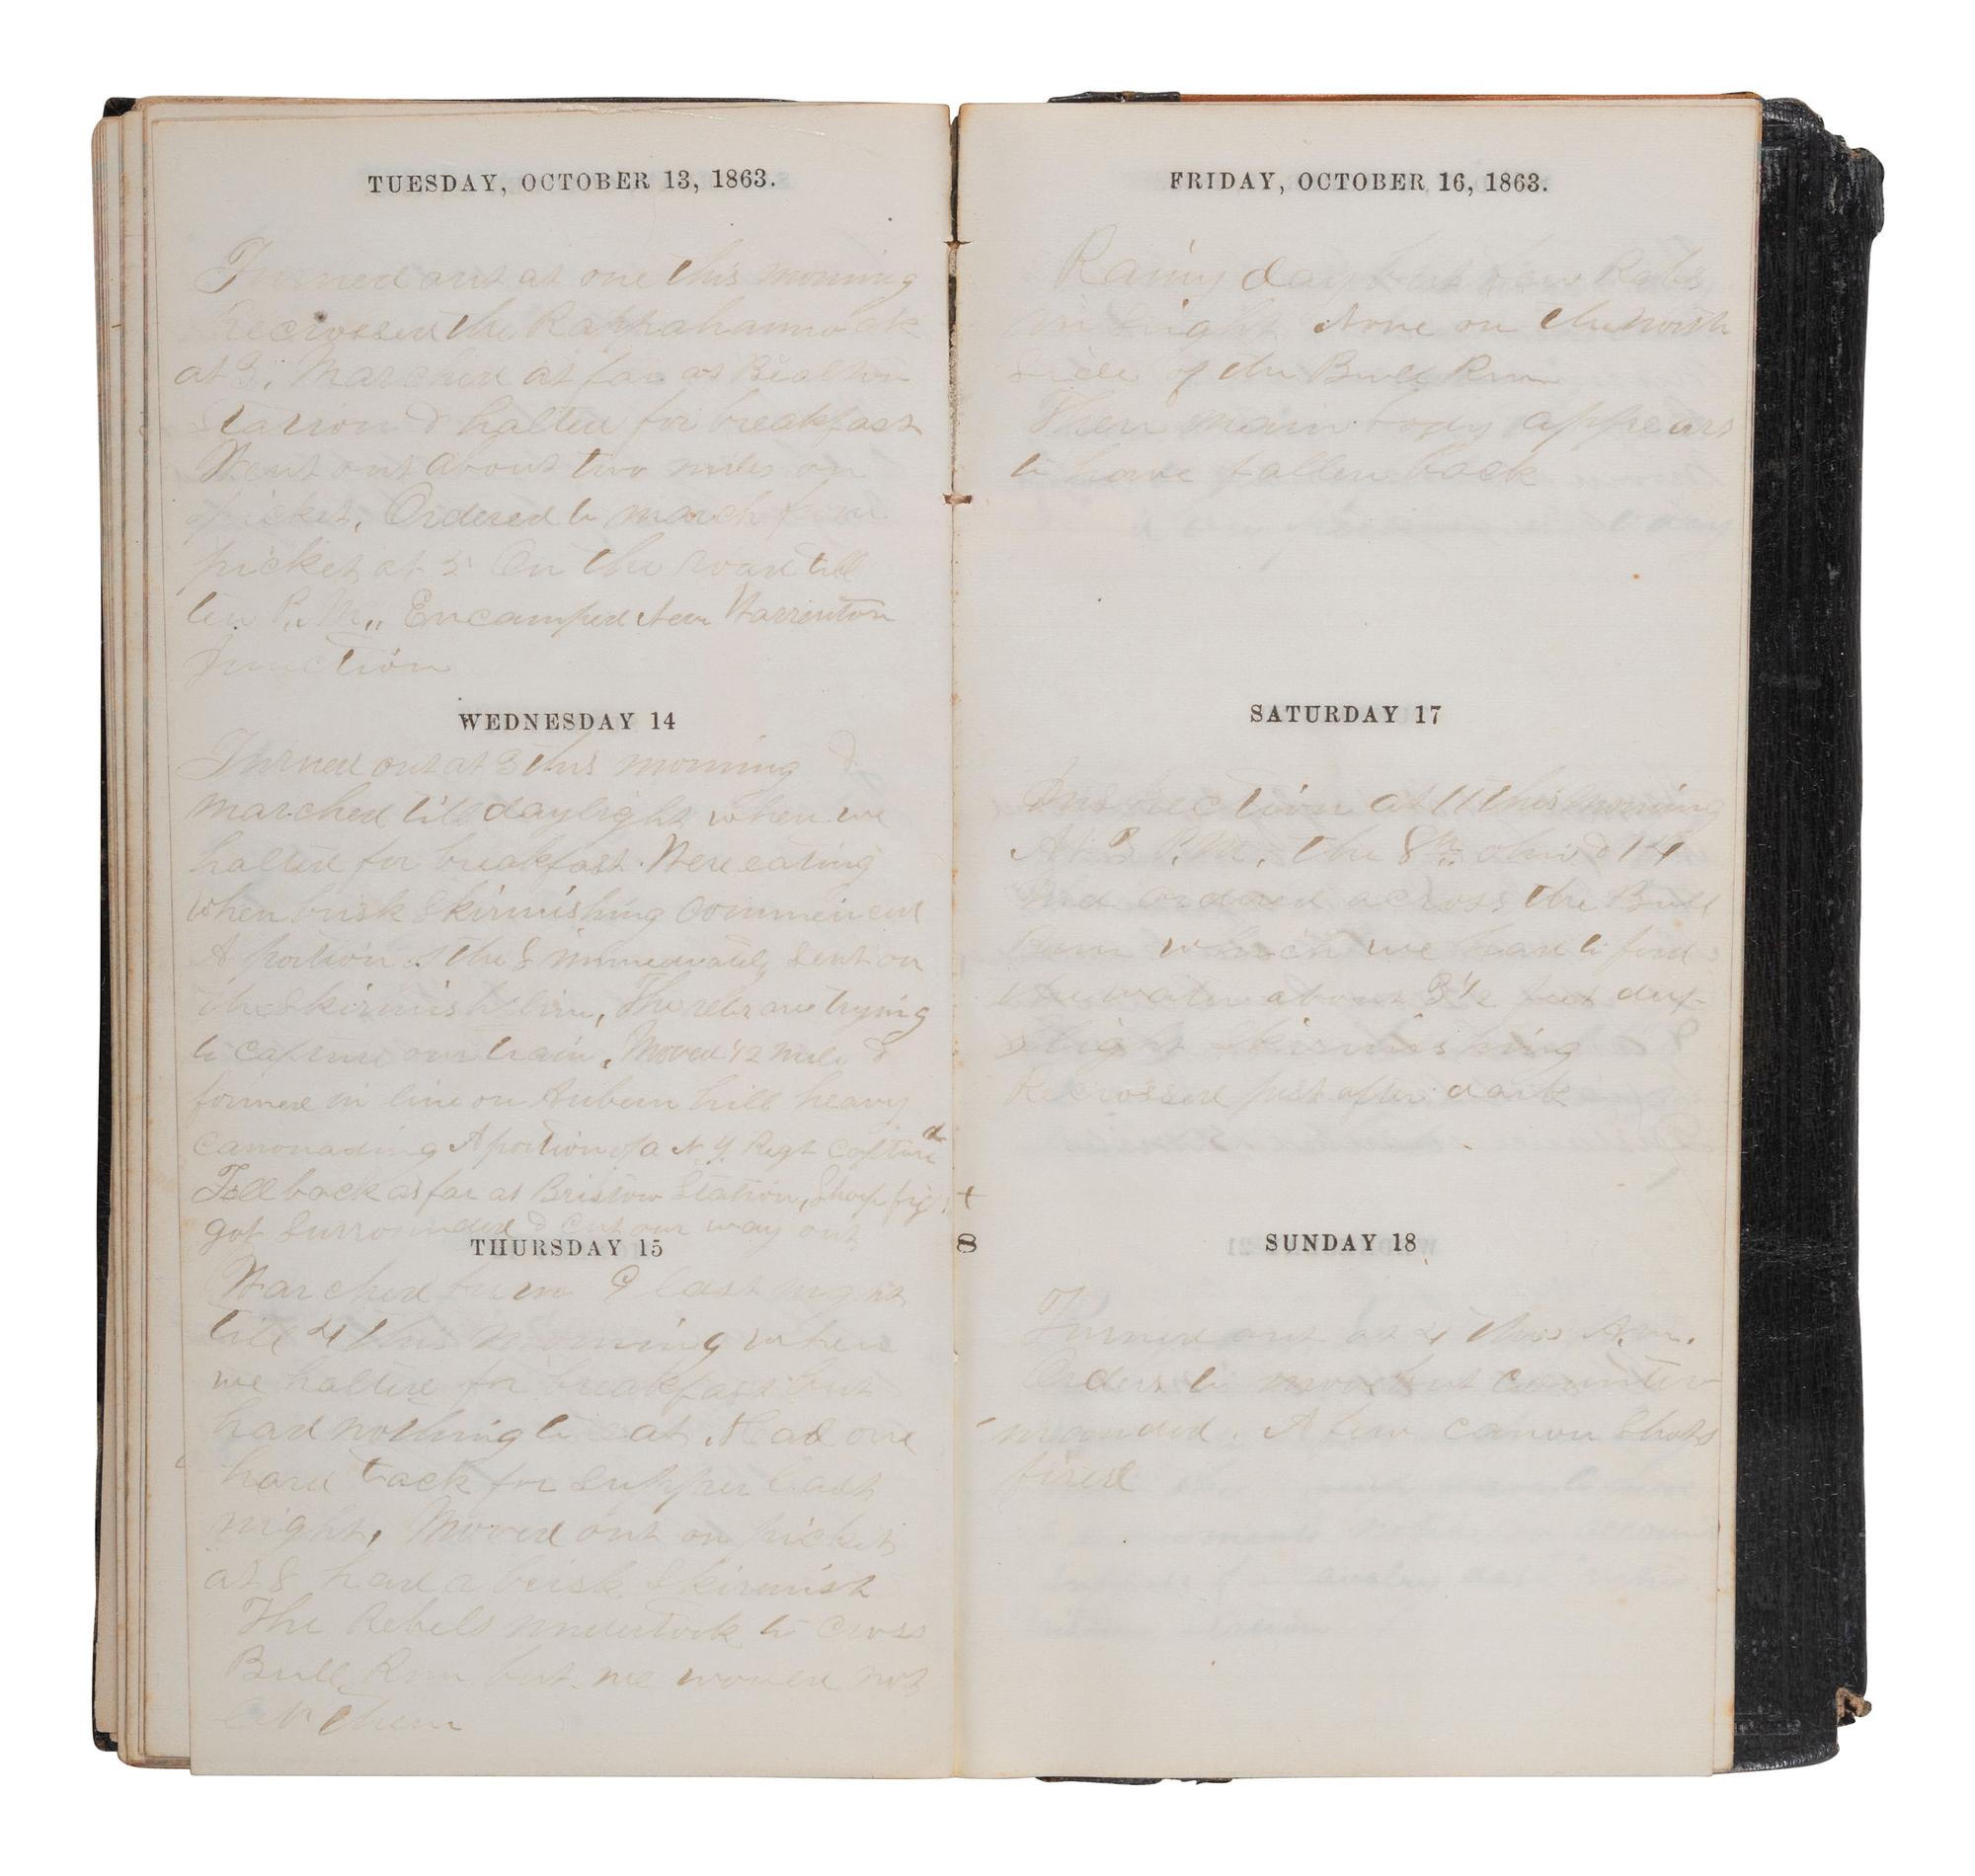 TUESDAY, OCTOBER 13, 1863.
Turned out at one this morning
Recrossed the Rappahannock
at 3. Marched as far as Bealton
Station & halted for breakfast
Went out about two miles on
picket. Ordered to march from
picket at 5 On the road till
ten P.M., Encamped near Warrenton
Junction
WEDNESDAY 14
Turned out at 3 this morning &
marched till daylight when we
halted for breakfast. Were eating
when brisk Skirmishing Commenced
A portion of the 8 immediately Sent on
the Skirmish line, The rebs are trying
to capture our train. Moved 1/2 mile &
formed in line on Auburn hill heavy
canonading A portion of a N Y Regt Captured
Fell back as far as Bristow Station, Sharp fight
got Surrounded & cut our way out
THURSDAY 15
Marched from 9 last night
till 4 this morning when
we halted for breakfast but
had nothing to eat. Had one
hard tack for Supper last
night. Moved out on picket
at 8 had a brisk Skirmish
The Rebels undertook to Cross
Bull Run but we would not
let them
FRIDAY, OCTOBER 16, 1863.
Rainy day but few Rebs
in sight None on the North
side of the Bull Run
Their main body appears
to have fallen back
SATURDAY 17
Inspection at 11 this morning
At 3 P.M. the 8th Ohio & 14
Ind ordered across the Bull
Run which we had to ford
the water about 3 1/2 feet deep
Slight Skirmishing
Recrossed just after dark
8
SUNDAY 18
Turned out at 4 this A.M.
Orders to move but counter
-manded. A few canon Shots
fired